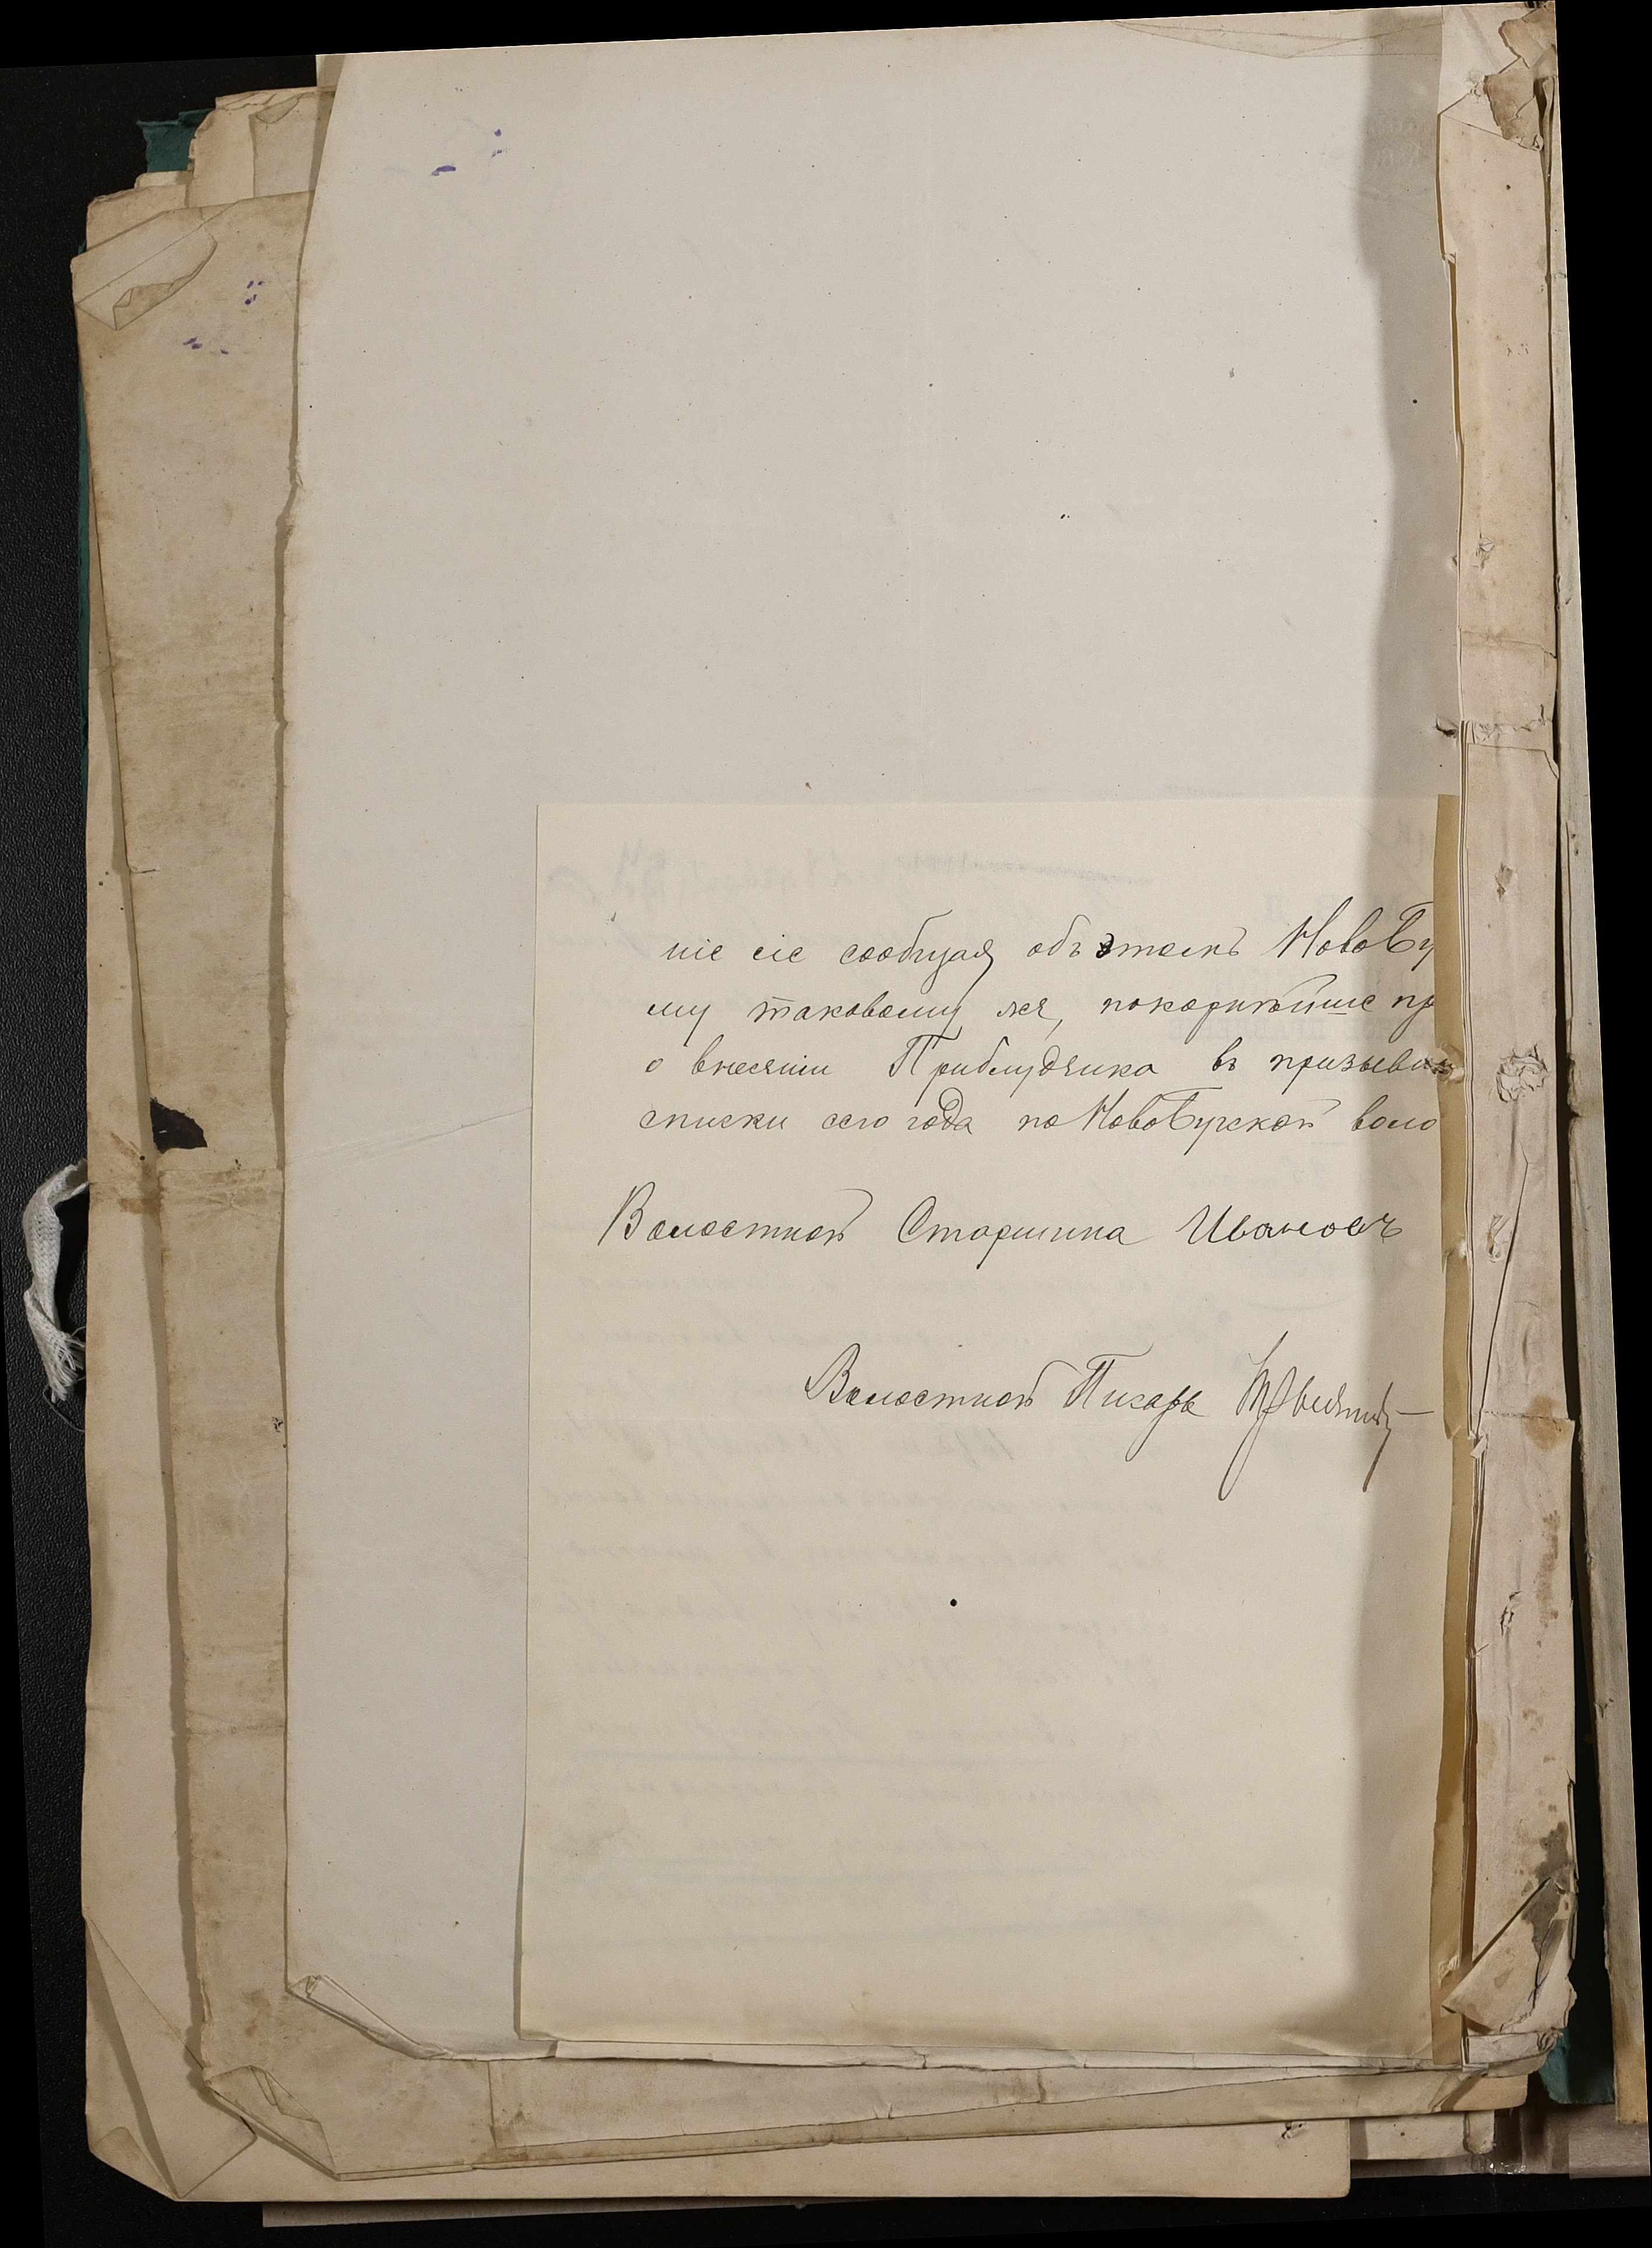 ніе сіе сообщая объ этомъ НовоБу
му таковому же, покорнѣйше пр
о внесеніи Приблудянка въ призывн
списки сего года по НовоБугской воло
Волостной Старшина Ивановъ
Волостной Писарь